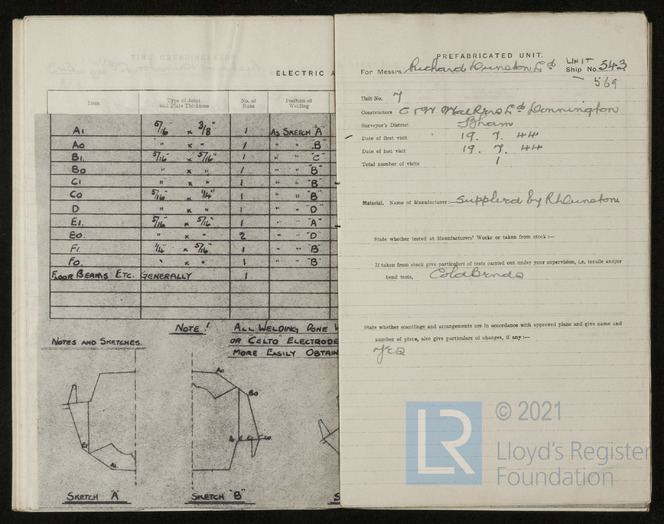 ELECTRIC A
Item
Type of Joint and Plate Thickness
No. of Runs
Position of Welding
A1 5/16 x 3/8" 1 As Sketch "A"
A0 " x " 1 " " "B"
B1 5/16 x 5/16" 1 " " "C"
B0 " x " 1 " " "B"
C1 " x " 1 " " "B"
C0 5/16 x 1/4" 1 " " "B"
D " x " 1 " " "D"
E1 5/16 x 5/16" 1 " " "A"
E0 " x " 2 " " "D"
F1 1/4" x 5/16" 1 " " "B"
F0 " x " 1 " " "B"
Floor Beams Etc. Generally 1
Note! All Welding Done W
or Celto Electrode
more Easily Obtain
Notes and Sketches.
A0
B0
E1
A1
Sketch "A"
Sketch "B"
S
PREFABRICATED UNIT.
For Messrs Richard Dunston Ld
UNIT
Ship No. 543
569
Unit No. 7
Constructors C & W Walkers Ld Donnington
Surveyor's District B'ham
Date of first visit 19. 7. 44
Date of last visit 19. 7. 44
Total number of visits 1
Material. Name of Manufacturer:— Supplied by R Dunston
State whether tested at Manufacturers' Works or taken from stock:—
If taken from stock give particulars of tests carried out under your supervision, i.e. tensile and/or
bend tests, Cold Bends
State whether scantlings and arrangements are in accordance with approved plans and give name and
number of plans, also give particulars of changes, if any:—
Yes
LR
© 2021
Lloyd's Register
Foundation